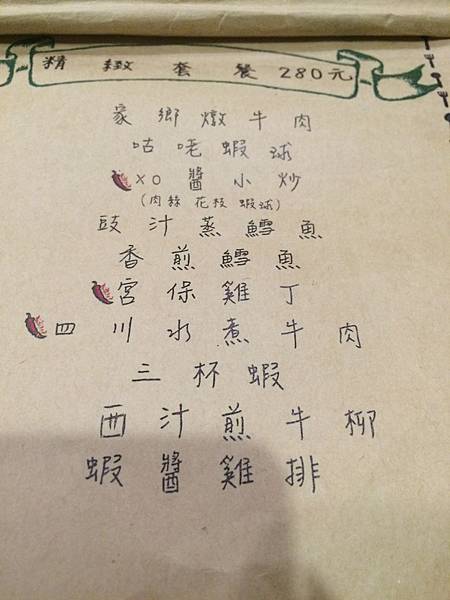 精緻套餐 280元
家鄉燉牛肉
咕咾蝦球
XO醬小炒
(肉絲 花枝 蝦球)
豉汁蒸鱈魚
香煎鱈魚
宮保雞丁
四川水煮牛肉
三杯蝦
西汁煎牛柳
蝦醬雞排